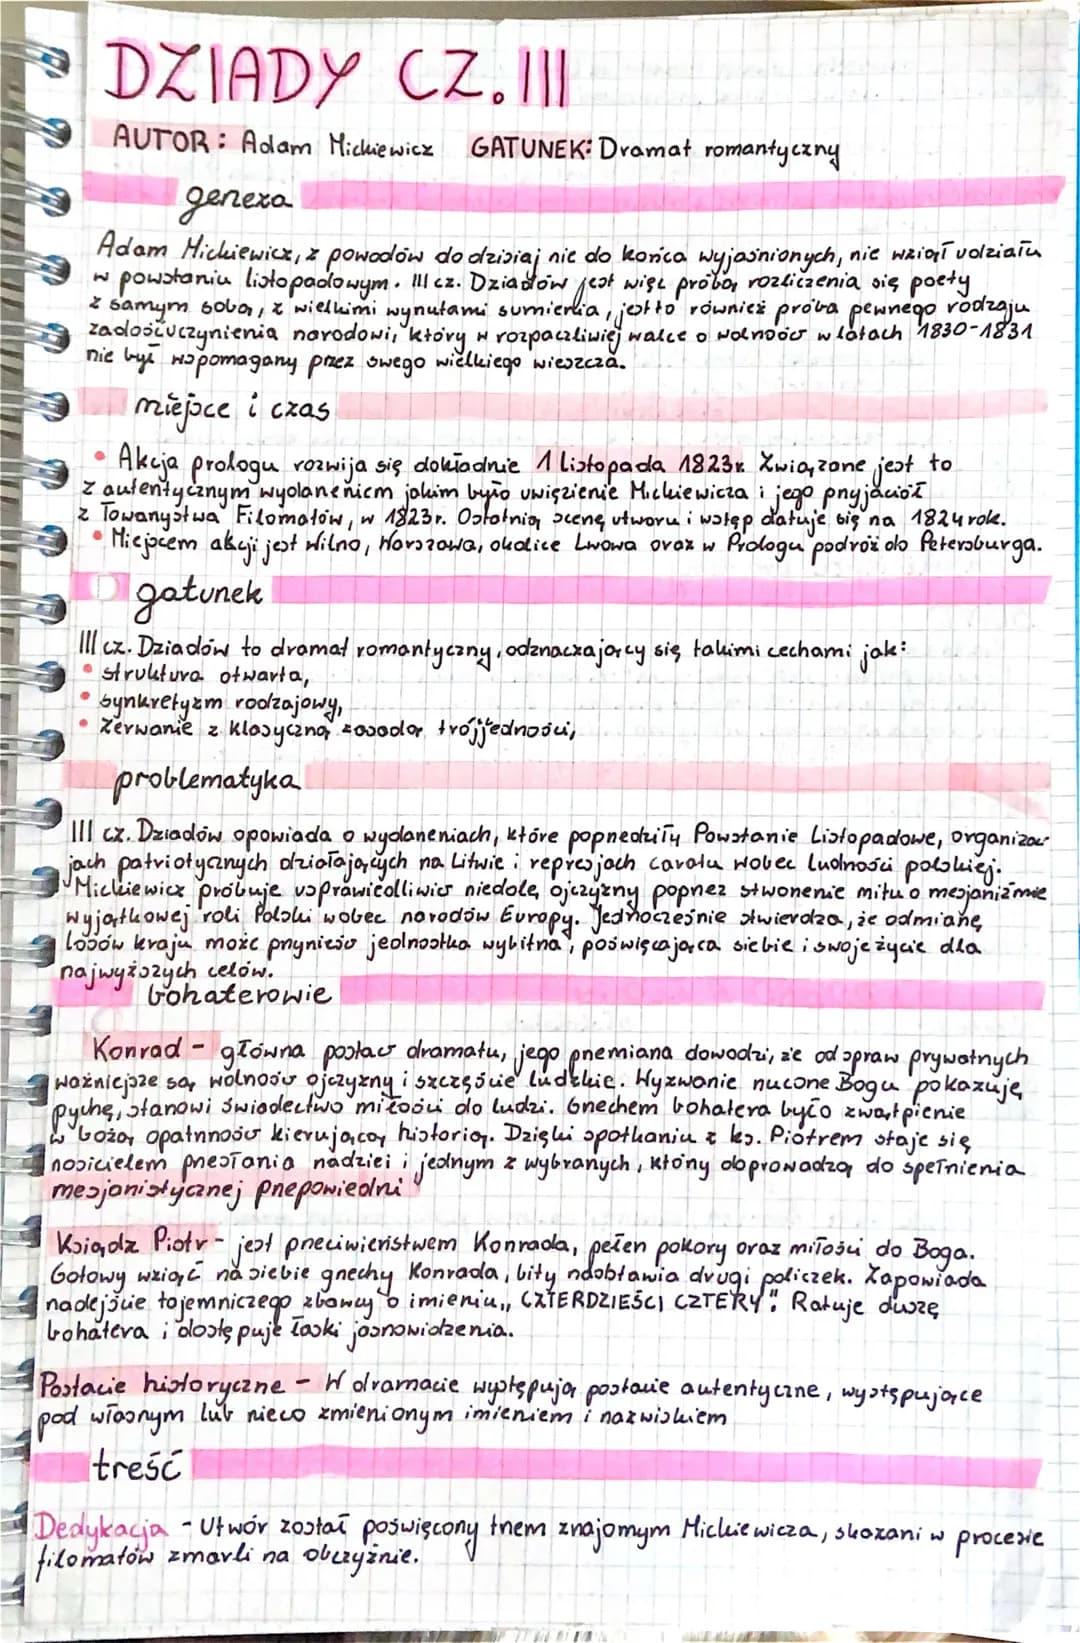 DZIADY CZ. III
AUTOR: Adam Mickiewicz GATUNEK: Dramat romantyczny
geneza
Adam Mickiewicz, z powodów do dzisiaj nie do końca wyjaśnionych, nie wziął udziału
w powstaniu listopadowym. III cz. Dziadów jest więc próbą rozliczenia się poety
z samym sobą, z wielkimi wyrzutami sumienia, jest to również próba pewnego rodzaju
zadośćuczynienia narodowi, który w rozpaczliwej walce o wolność w latach 1830-1831
nie był wspomagany przez swego wielkiego wieszcza.
miejsce i czas
• Akcja prologu rozwija się dokładnie 1 listopada 1823r. Związane jest to
z autentycznym wydarzeniem jakim było uwięzienie Mickiewicza i jego przyjaciół
z Towarzystwa Filomatów, w 1823r. Ostatnią scenę utworu i wstęp datuje się na 1824 rok.
• Miejscem akcji jest Wilno, Warszawa, okolice Lwowa oraz w Prologu podróż do Petersburga.
gatunek
III cz. Dziadów to dramat romantyczny, odznaczający się takimi cechami jak:
• struktura otwarta,
• synkretyzm rodzajowy,
• Zerwanie z klasyczną zasadą trójjedności,
problematyka
III cz. Dziadów opowiada o wydarzeniach, które poprzedziły Powstanie Listopadowe, organizac
jach patriotycznych działających na Litwie i represjach caratu wobec ludności polskiej.
Mickiewicz próbuje usprawiedliwić niedolę ojczyzny poprzez stworzenie mitu o mesjanizmie
wyjątkowej roli Polski wobec narodów Europy. Jednocześnie stwierdza, że odmianę
losów kraju może przynieść jednostka wybitna, poświęcająca siebie i swoje życie dla
najwyższych celów.
bohaterowie
Konrad - główna postać dramatu, jego przemiana dowodzi, że od spraw prywatnych
ważniejsze są wolność ojczyzny i szczęście ludzkie. Wyzwanie rzucone Bogu pokazuje
pychę, stanowi świadectwo miłości do ludzi. Grzechem bohatera było zwątpienie
w bożą opatrzność kierującą historią. Dzięki spotkaniu z ks. Piotrem staje się
nosicielem przesłania nadziei i jednym z wybranych, którzy doprowadzą do spełnienia
mesjanistycznej przepowiedni
Ksiądz Piotr - jest przeciwieństwem Konrada, pełen pokory oraz miłości do Boga.
Gotowy wziąć na siebie grzechy Konrada, bity nadstawia drugi policzek. Zapowiada
nadejście tajemniczego zbawcy o imieniu „CZTERDZIEŚCI CZTERY". Ratuje duszę
bohatera i dostępuje łaski jasnowidzenia.
Postacie historyczne - W dramacie występują postacie autentyczne, występujące
pod własnym lub nieco zmienionym imieniem i nazwiskiem
treść
Dedykacja - Utwór został poświęcony trzem znajomym Mickiewicza, skazani w procesie
filomatów zmarli na obczyźnie.